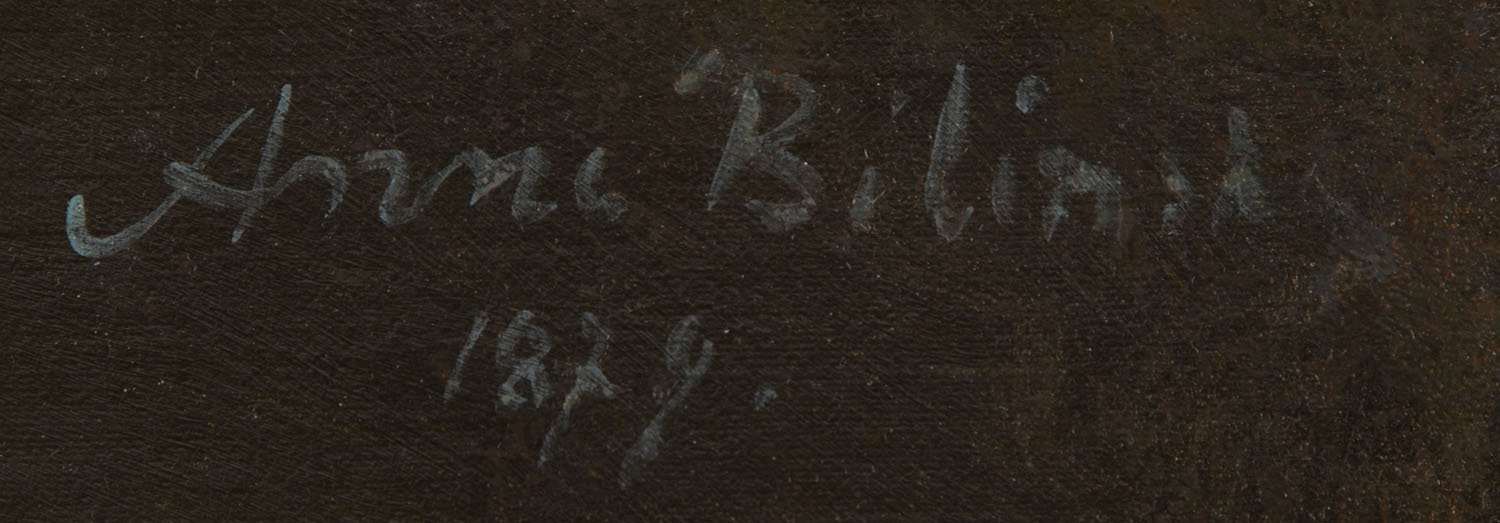 Anna Bilinsk
1879.